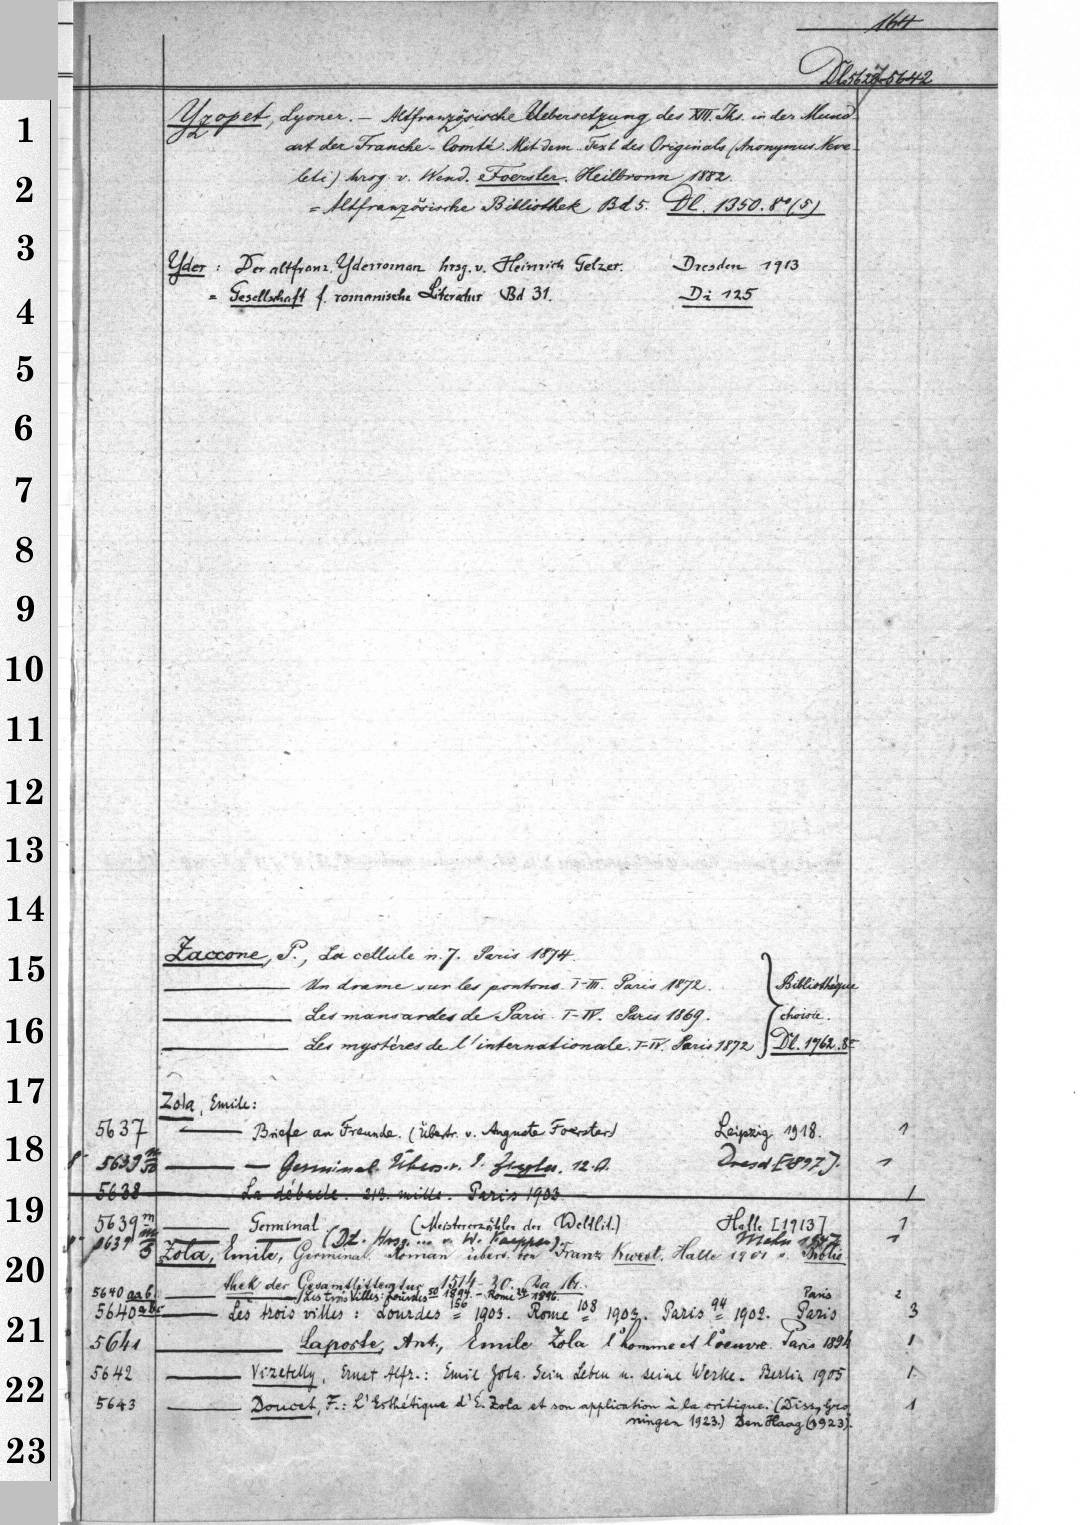 164
Dl 5627-5642
Yzopet, Lyoner. — Altfranzösische Uebersetzung des XIII. Jhs. in der Mund
art der Franche-Comté. Mit dem Text des Originals (Anonymus Neve-
leti) hrsg. v. Wend. Foerster. Heilbronn 1882.
= Altfranzösische Bibliothek Bd 5. Dl. 1350. 8º (5)
Yder : Der altfranz. Yderroman hrsg. v. Heinrich Gelzer. Dresden 1913
= Gesellschaft f. romanische Literatur Bd 31. Di 125
Zaccone, P., La cellule n. 7. Paris 1874.
Un drame sur les pontons. I-III. Paris 1872. Bibliothèque
Les mansardes de Paris. I-IV. Paris 1869. choisie.
Les mystères de l'internationale. I-IV. Paris 1872 Dl. 1762. 8º
Zola, Emile:
5637 — Briefe an Freunde. (Übertr. v. Auguste Foerster) Leipzig 1918. 1
5639 — — Germinal. Übers. v. 12. A. Dresd. [1897]. 1
5638 La débacle. 212. mille. Paris 1903 1
5639 m — Germinal (Meistererzähler der Weltlit.) Halle [1913] 1
(Dt. Hrsg. ... v. W. 1947 1
5639 Zola, Emile, Germinal. Roman übers. von Franz Kwest. Halle 1901 = Biblio
thek der Gesamtlitteratur 1514-20. Da 161.
5640 aab — Les trois villes: Lourdes 50 1894. - Rome 24 1896. Paris 2
5640 abc — Les trois villes: Lourdes 156 = 1903. Rome 108 = 1903. Paris 94 = 1902. Paris 3
5641 — Laporte, Ant., Emile Zola l'homme et l'oeuvre. Paris 1894 1
5642 — Vizetelly, Ernst Alfr.: Emil Zola. Sein Leben u. seine Werke. Berlin 1905 1
5643 — Doucet, F.: L'Esthétique d'E. Zola et son application à la critique. (Diss. Gro
ningen 1923.) Den Haag (1923). 1
1
2
3
4
5
6
7
8
9
10
11
12
13
14
15
16
17
18
19
20
21
22
23